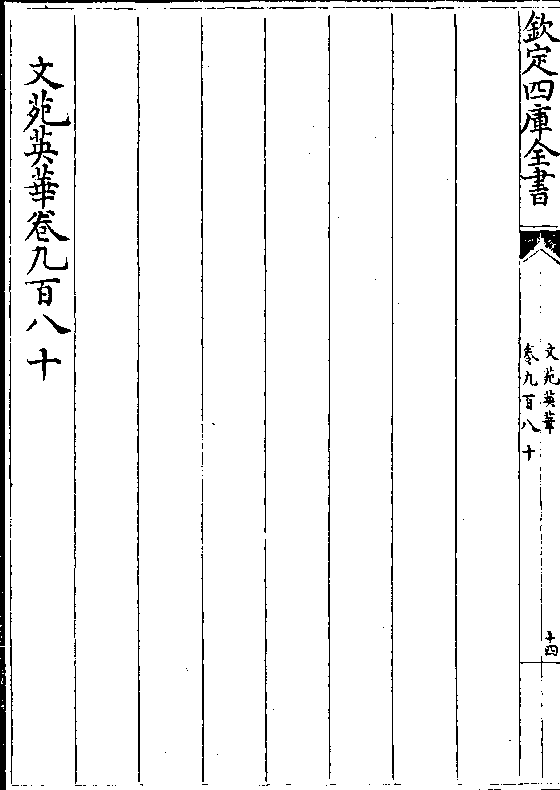 欽定四庫全書
文苑英華
卷九百八十
十四
文苑英華卷九百八十